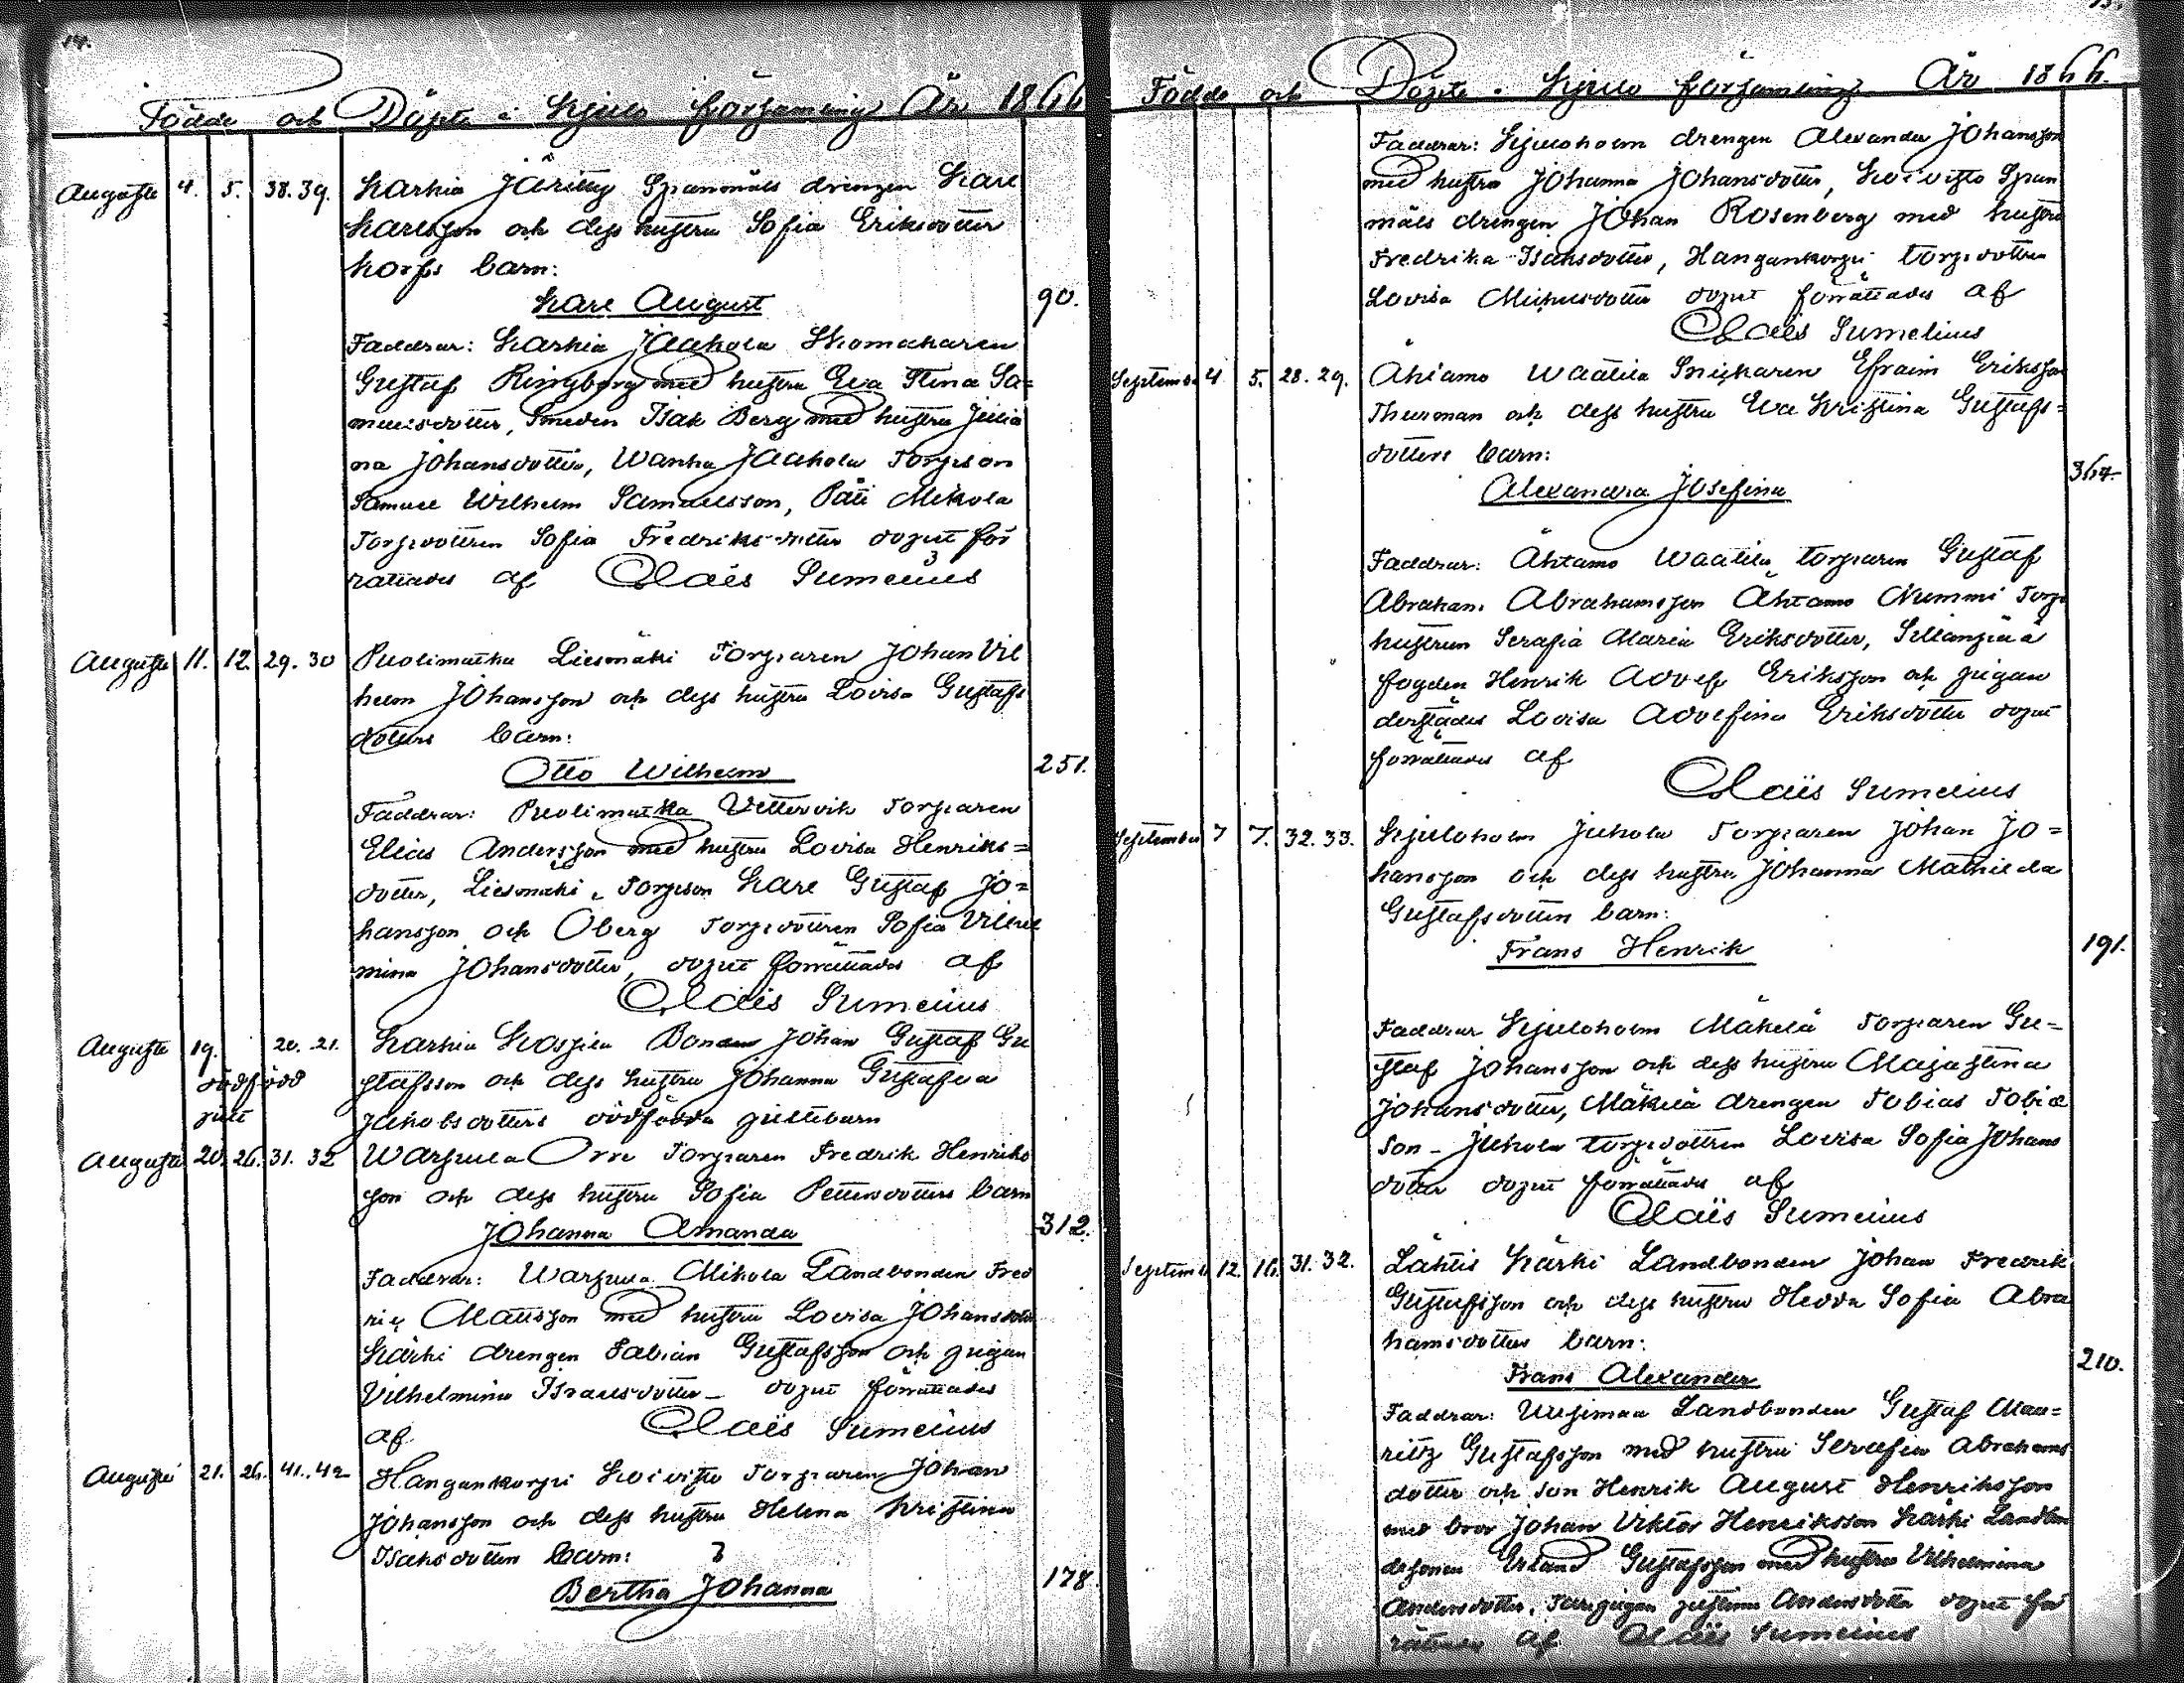 14.
Födde och Döpte i Kjulo församling År 1866
Augusti 4. 5. 38. 39. Karhia Järitty Spanmåls drengen Karl
Karlsson och dess hustru Sofia Eriksdotter
Korfs barn:
Karl August 90.
Faddrar: Karhia Jaakola Skomakaren
Gustaf Ringberg med hustru Eva Stina Sa=
muelsdotter, Smeden Isak Berg med hustru Julia
na Johansdotter, Wanha Jaakola Torpson
Samuel Wilhelm Samuelsson, Päti Mikola
Torpdottren Sofia Fredriksdotter dopet för
rättades af Claës Sumelius
Augusti 11. 12. 29. 30 Puolimatka Liesmäki Torparen Johan Vil
helm Johansson och dess hustru Lovisa Gustafs
dotters barn:
Otto Wilhelm 251.
Faddrar: Puolimatka Vettervik Torparen
Elias Andersson med hustru Lovisa Henriks=
dotter, Liesmäki Torpson Karl Gustaf Jo=
hansson och Öberg Torpdottren Sofia Vilhel
mina Johansdotter, dopet förrättades af
Claës Sumelius
Augusti 19. 20. 21. Karhia Kospila Bonden Johan Gustaf Gu
dödfödd
stafsson och dess hustru Johanna Gustafva
Jakobsdotters dödfödda gillebarn
Augusti 20. 26. 31. 32 Warpula Orri Torparen Fredrik Henriks
son och dess hustru Sofia Pettersdotters barn
Johanna Amanda 312.
Faddrar: Warpula Mikola Landbonden Fred
ric Mattsson med hustru Lovisa Johansdotter
Kärki drengen Fabian Gustafsson och pigan
Vilhelmina Israelsdotter – dopet förrättades
af Claës Sumelius
Augusti 21. 26. 41. 42 Hangankorpi Koivisto Torparen Johan
Johansson och dess hustru Helena Kristina
Isaksdotters barn:
Bertha Johanna 178.
15.
Födde och Döpte i Kjulo församling År 1866.
Faddrar: Kjuloholm drengen Alexander Johansson
med hustru Johanna Johansdotter, Koivisto Span
måls drengen Johan Rosenberg med hustru
Fredrika Isaksdotter, Hangankorpi torpdottren
Lovisa Michelsdotter dopet förrättades af
Claës Sumelius
September 4 5. 28. 29. Ähtämo Waatila Snickaren Efraim Eriksson
Thurman och dess hustru Eva Kristina Gustafs=
dotters barn:
364.
Alexandra Josefina
Faddrar: Ähtämo Waatila torparen Gustaf
Abraham Abrahamsson Ähtämo Nummi Torp
hustrun Serafia Maria Eriksdotter, Sillanpää
fogden Henrik Adolf Eriksson och pigan
derstädes Lovisa Adolfina Eriksdotter dopet
förrättades af
Claës Sumelius
September 7 7. 32. 33. Kjuloholm Juhola Torparen Johan Jo=
hansson och dess hustru Johanna Mathilda
Gustafsdotters barn:
Frans Henrik 191.
Faddrar Kjuloholm Mäkelä Torparen Gu=
staf Johansson och dess hustru Majastina
Johansdotter, Mäkelä drengen Tobias Tobia
son – Juhola torpdottren Lovisa Sofia Johans
dotter dopet förrättades af
Claës Sumelius
September 12. 16. 31. 32. Lähtis Kärki Landbonden Johan Fredrik
Gustafsson och dess hustru Hedda Sofia Abra
hamsdotters barn:
210.
Frans Alexander
Faddrar: Uusimaa Landbonden Gustaf Mau=
ritz Gustafsson med hustru Serafia Abrahams
dotter och son Henrik August Henriksson
med bror Johan Viktor Henriksson Kärki Landbon
desonen Erland Gustafsson med hustru Vilhelmina
Andersdotter, Andersdotter dopet för
rättades af Claës Sumelius